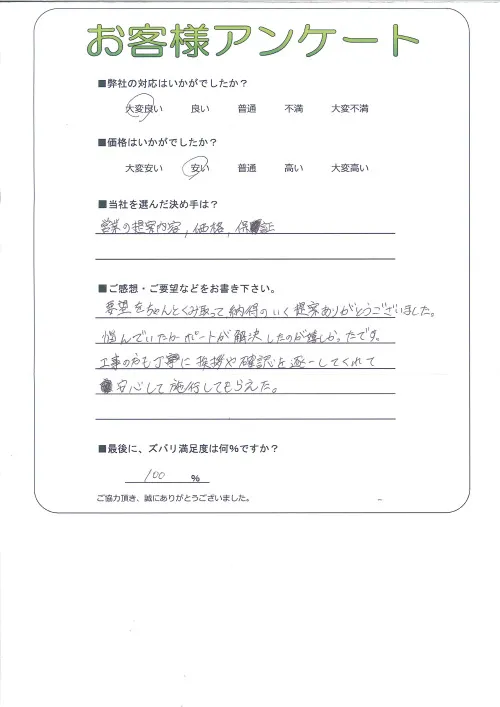 お客様アンケート
■弊社の対応はいかがでしたか？
大変良い 良い 普通 不満 大変不満
■価格はいかがでしたか？
大変安い 安い 普通 高い 大変高い
■当社を選んだ決め手は？
営業の提案内容, 価格, 保証
■ご感想・ご要望などをお書き下さい。
要望をちゃんとくみ取って納得のいく提案ありがとうございました。
悩んでいたカーポートが解決したのが嬉しかったです。
工事の方も丁寧に挨拶や確認を逐一してくれて
安心して施行してもらえた。
■最後に、ズバリ満足度は何％ですか？
100 %
ご協力頂き、誠にありがとうございました。